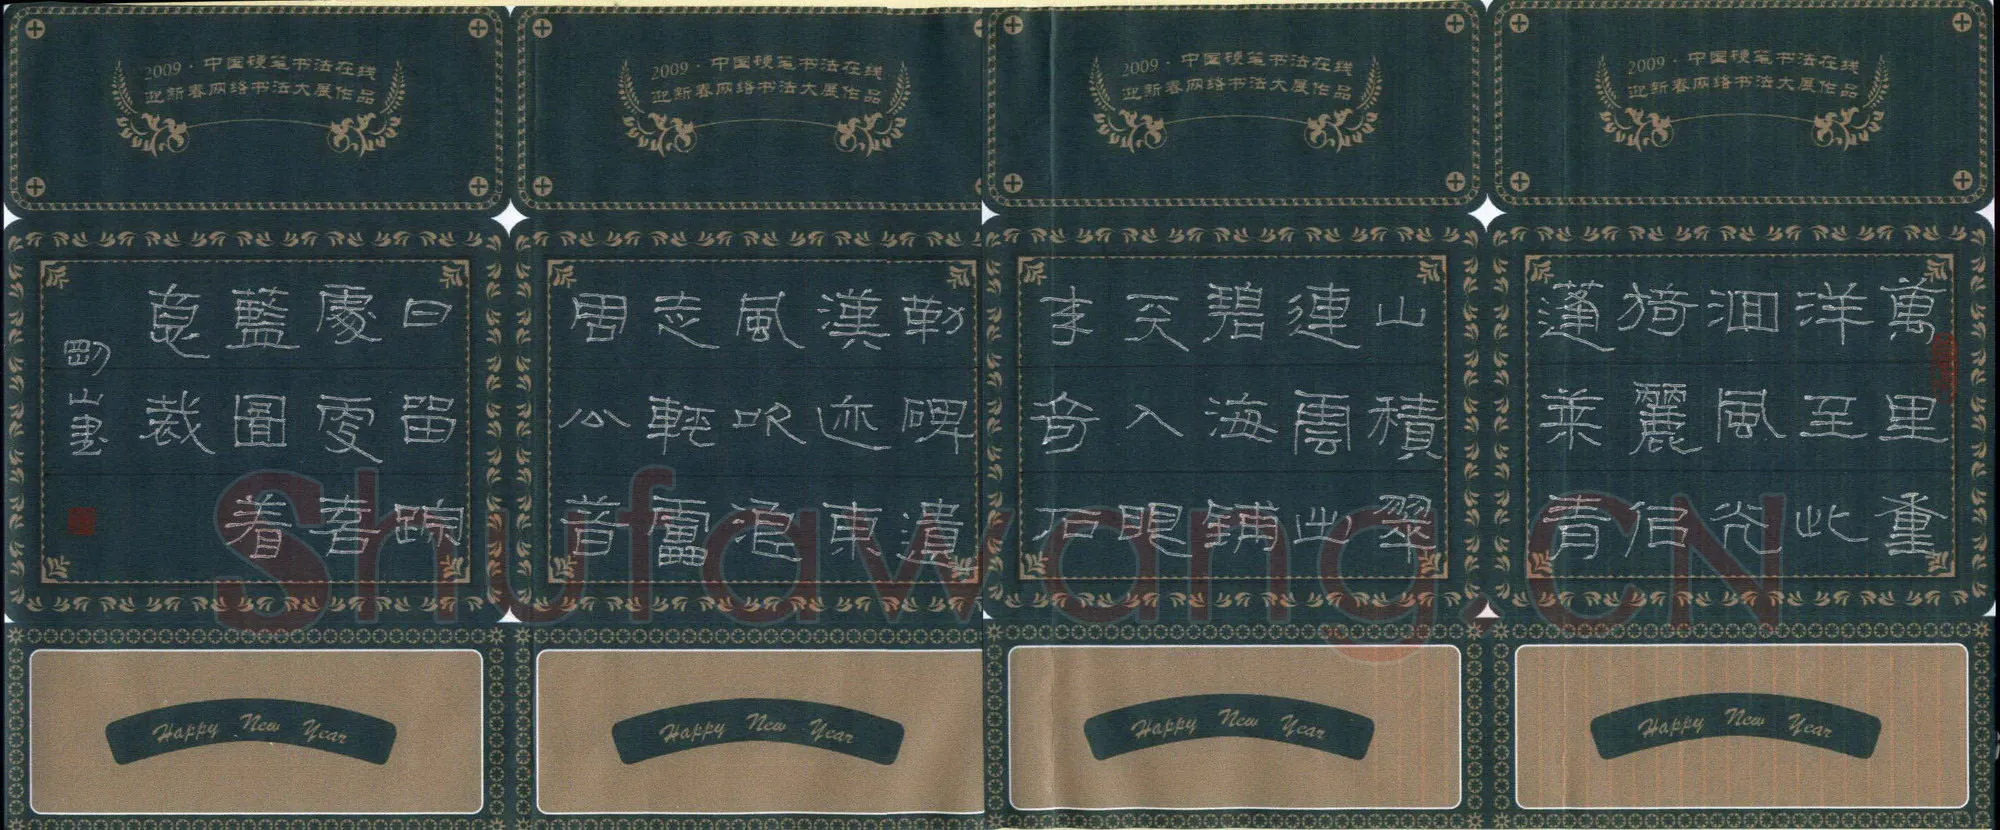 2009·中国硬笔书法在线
迎新春网络书法大展作品
2009·中国硬笔书法在线
迎新春网络书法大展作品
2009·中国硬笔书法在线
迎新春网络书法大展作品
2009·中国硬笔书法在线
迎新春网络书法大展作品
萬里重
洋至此
洄風光
猗麗佀
蓬萊青
山積翠
連雲出
碧海鋪
天入眼
来奇石
勒碑遺
漢迹東
風吹浪
走輕雷
周公昔
日留踪
處更喜
藍圖着
意裁
剛山書
Happy New Year
Happy New Year
Happy New Year
Happy New Year
Shufawang.CN